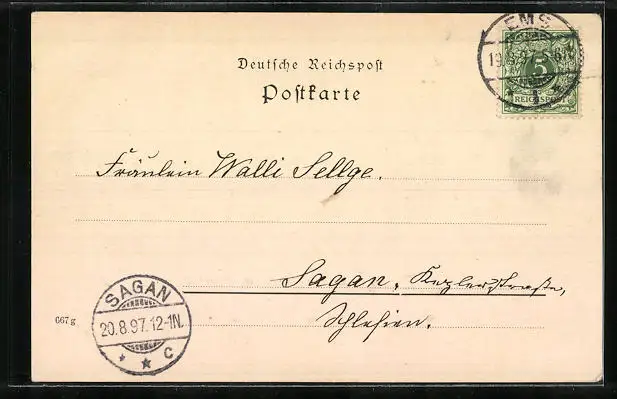 EMS
19
5
REICHSPOST
Deutsche Reichspost
Postkarte
Fräulein Walli Sellge.
Sagan, Keplerstraße,
Schlesien.
SAGAN
20.8.97.12-1N.
* * C
667g